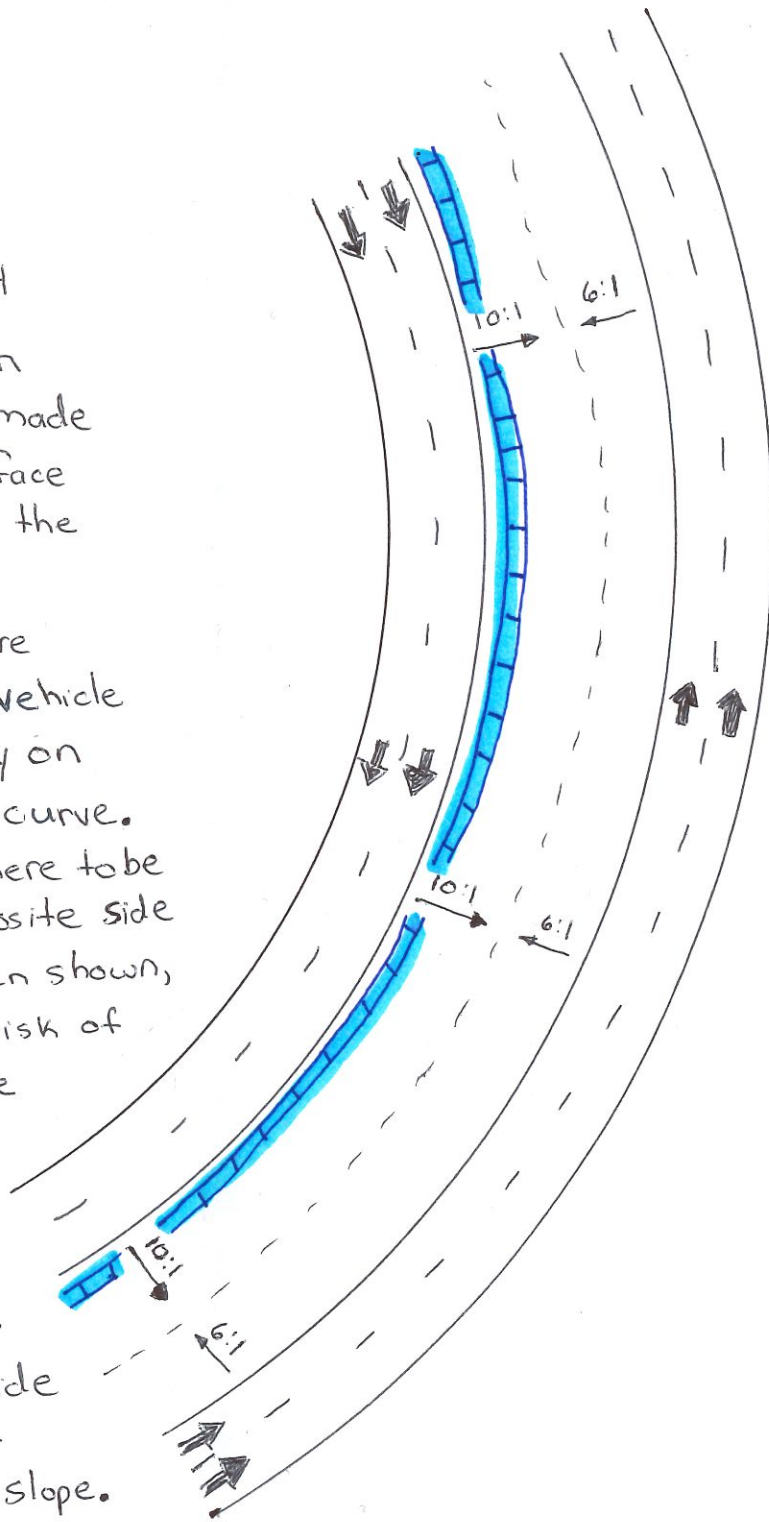 n
made
face
the
re
vehicle
y on
curve.
here to be
osite side
n shown,
isk of
e
ide
slope.
10:1
6:1
10:1
6:1
10:1
6:1